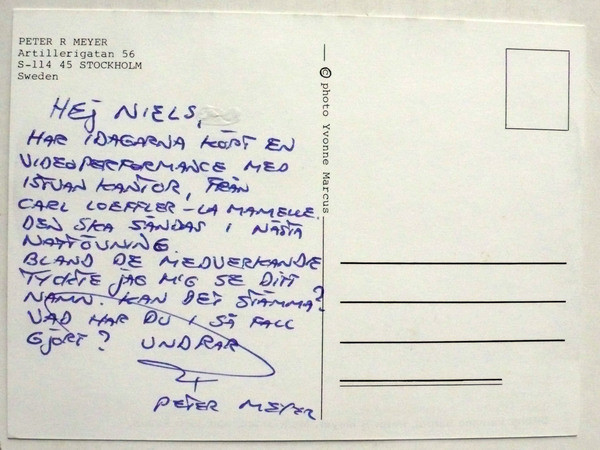 PETER R MEYER
Artillerigatan 56
S-114 45 STOCKHOLM
Sweden
© photo Yvonne Marcus
HEJ NIELS,
HAR IDAGARNA KÖPT EN
VIDEOPERFORMANCE MED
ISTVAN KANTOR, FRÅN
CARL LOEFFLER - LA MAMELLE.
DEN SKA SÄNDAS I NÄSTA
NATTÖVNING.
BLAND DE MEDVERKANDE
TYCKTE JAG MIG SE DITT
NAMN. KAN DET STÄMMA?
VAD HAR DU I SÅ FALL
GJORT? UNDRAR
PETER MEYER